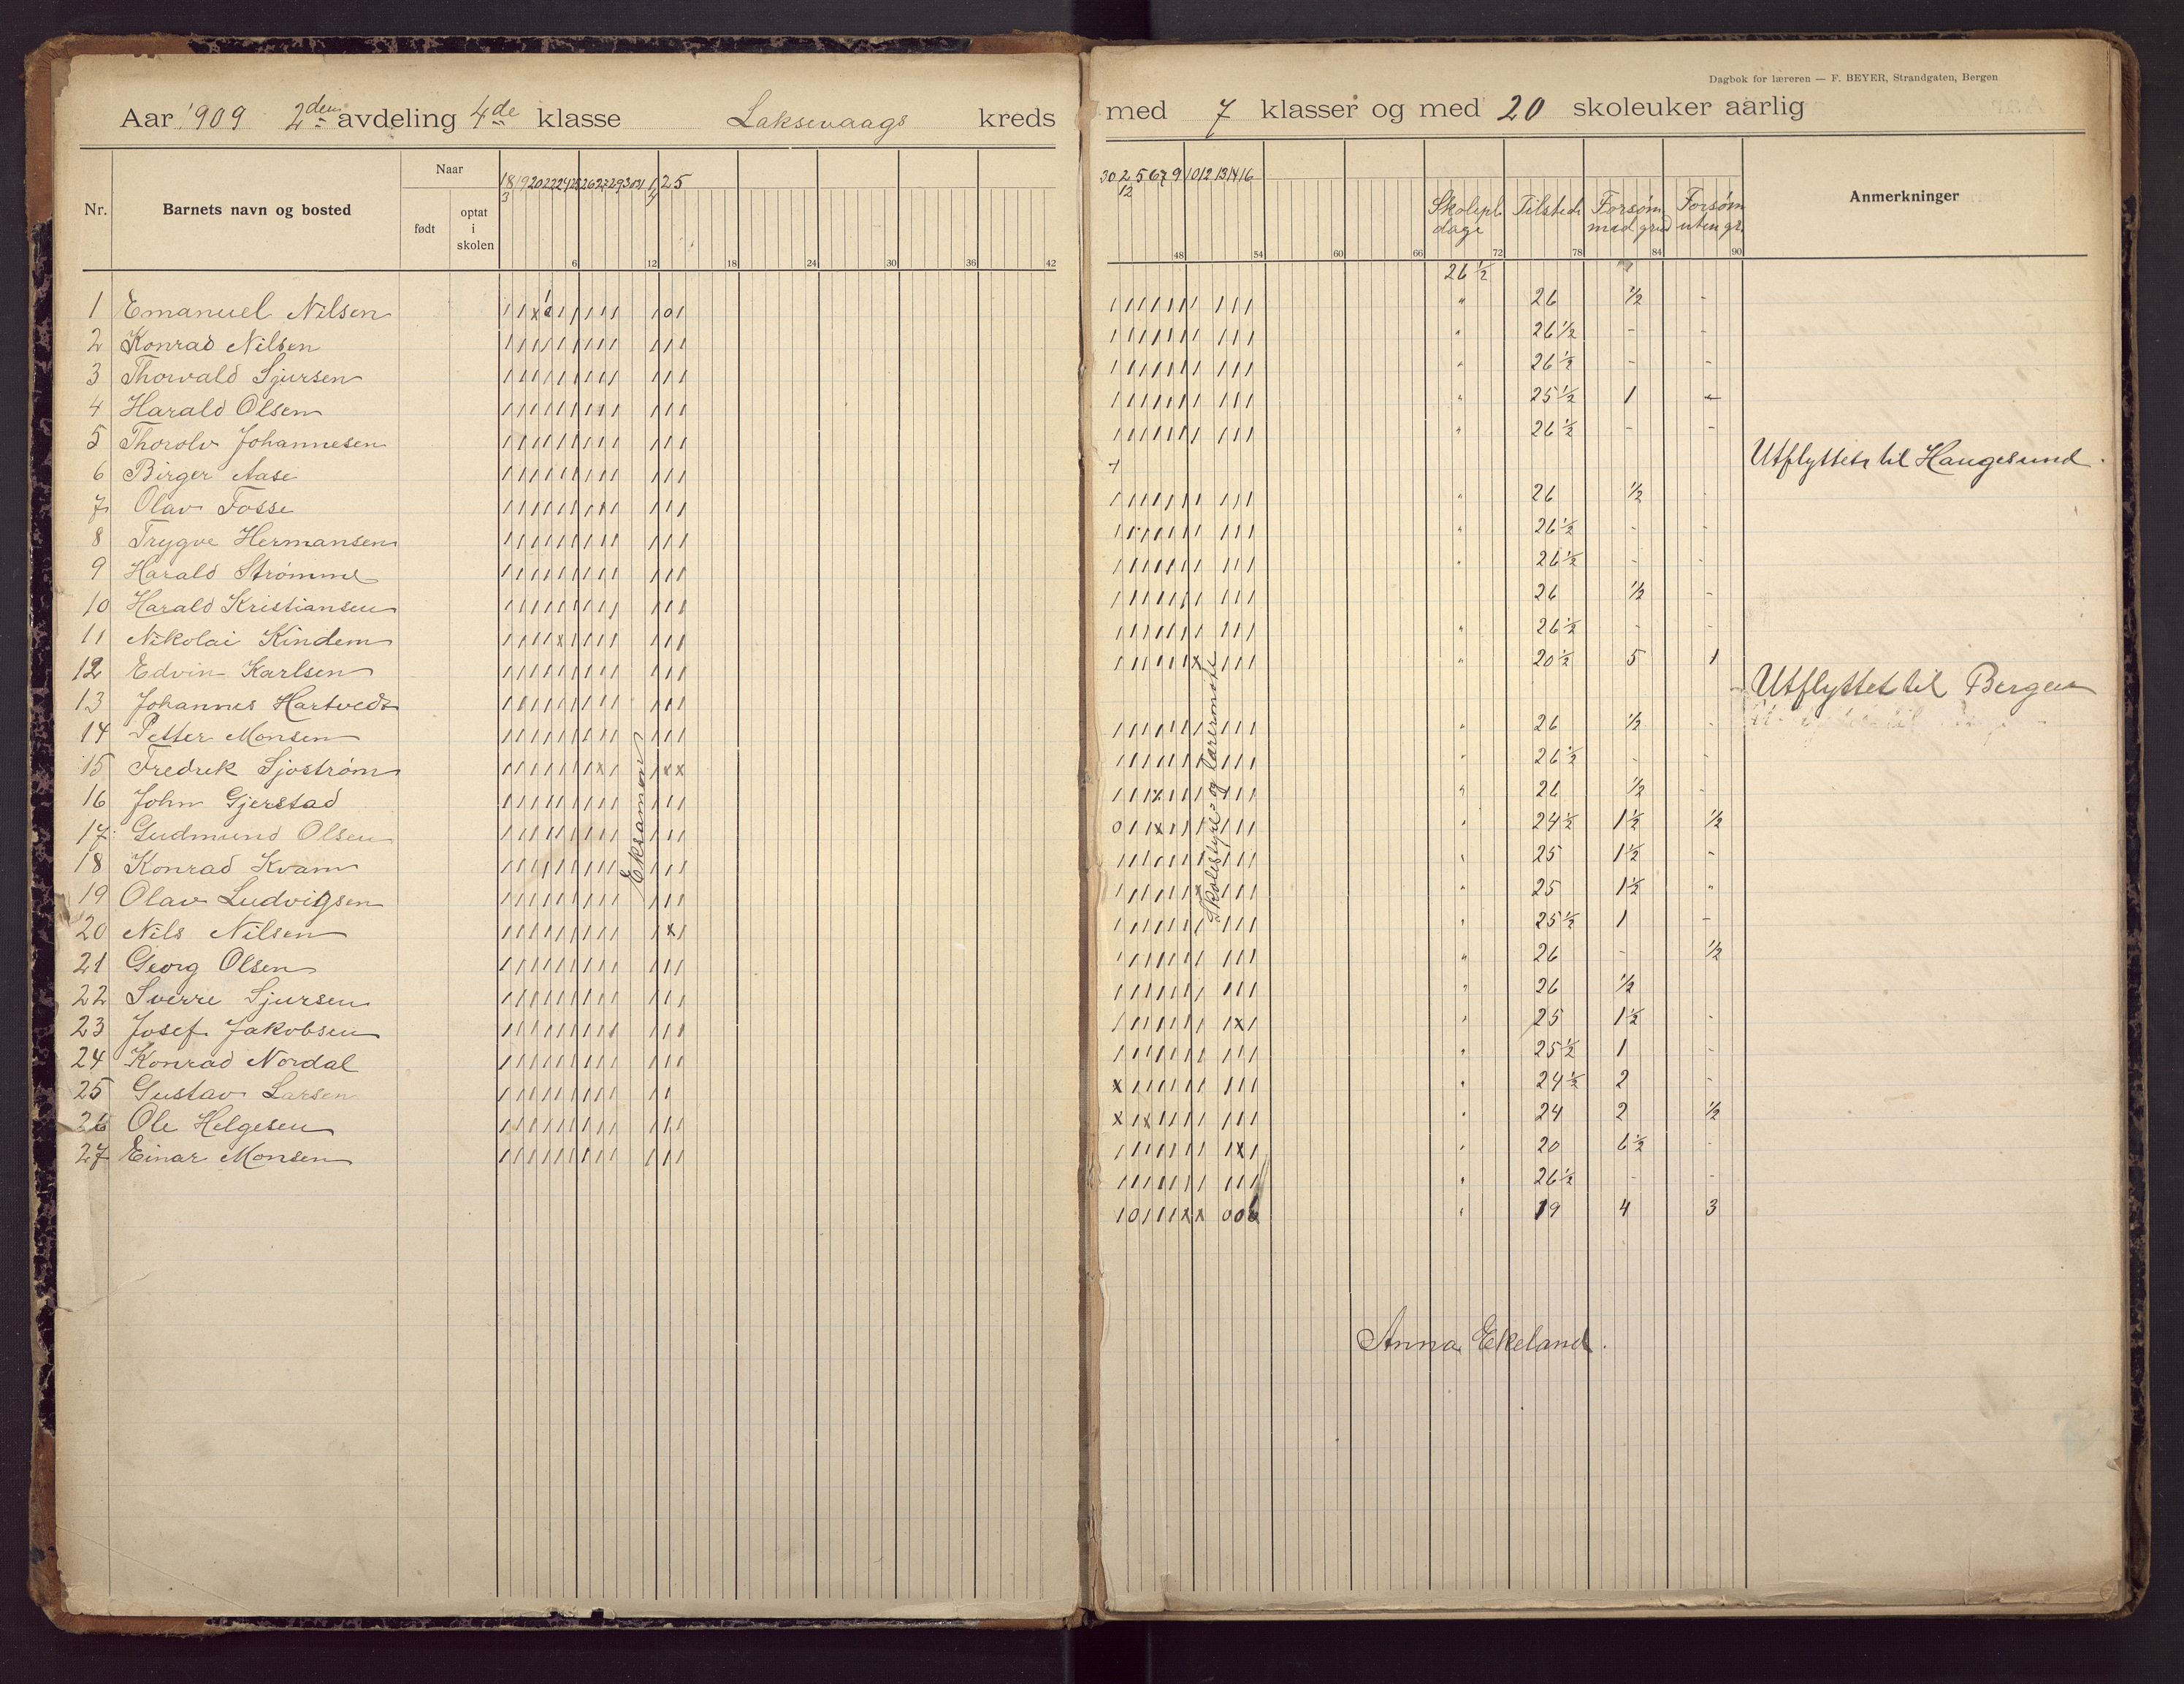 Dagbok for læreren — F. BEYER, Strandgaten, Bergen
Aar 1909 2den avdeling 4de klasse Laksevaags kreds med 7 klasser og med 20 skoleuker aarlig
Nr. Barnets navn og bosted Naar født optat i skolen
18/3 19 20 22 24 25 26 27 29 30 31 1/4 2 5
6 12 18 24 30 36 42
30 2/12 5 6 7 9 10 12 13 14 16
48 54 60 66 72 78 84 90
Skolepl. dage Tilstede Forsøm med grud Forsøm uten gr. Anmerkninger
26 1/2
1 Emanuel Nilsen " 26 1/2 -
2 Konrad Nilsen " 26 1/2 - -
3 Thorvald Sjursen " 26 1/2 - -
4 Harald Olsen " 25 1/2 1 -
5 Thorolv Johannesen " 26 1/2 - -
6 Birger Aase Utflyttet til Haugesund.
7 Olav Fosse " 26 1/2 -
8 Trygve Hermansen " 26 1/2 - -
9 Harald Strømme " 26 1/2 - -
10 Harald Kristiansen 26 1/2 -
11 Nikolai Kindem " 26 1/2 - -
12 Edvin Karlsen " 20 1/2 5 1
13 Johannes Hartvedt Utflyttet til Bergen
14 Petter Monsen " 26 1/2 -
15 Fredrik Sjøstrøm " 26 1/2 - -
16 John Gjerstad " 26 1/2 -
17 Gudmund Olsen " 24 1/2 1 1/2 1/2
18 Konrad Kvam " 25 1 1/2 -
19 Olav Ludvigsen " 25 1 1/2 "
20 Nils Nilsen " 25 1/2 1 -
21 Georg Olsen " 26 - 1/2
22 Sverre Sjursen " 26 1/2
23 Josef Jakobsen " 25 1 1/2 -
24 Konrad Nordal " 25 1/2 1 -
25 Gustav Larsen " 24 1/2 2 -
26 Ole Helgesen " 24 2 1/2
27 Einar Monsen " 20 6 1/2 -
" 26 1/2 - -
" 19 4 3
Eksamen
Skolestyre- og lærermøte
Anna Ekeland.